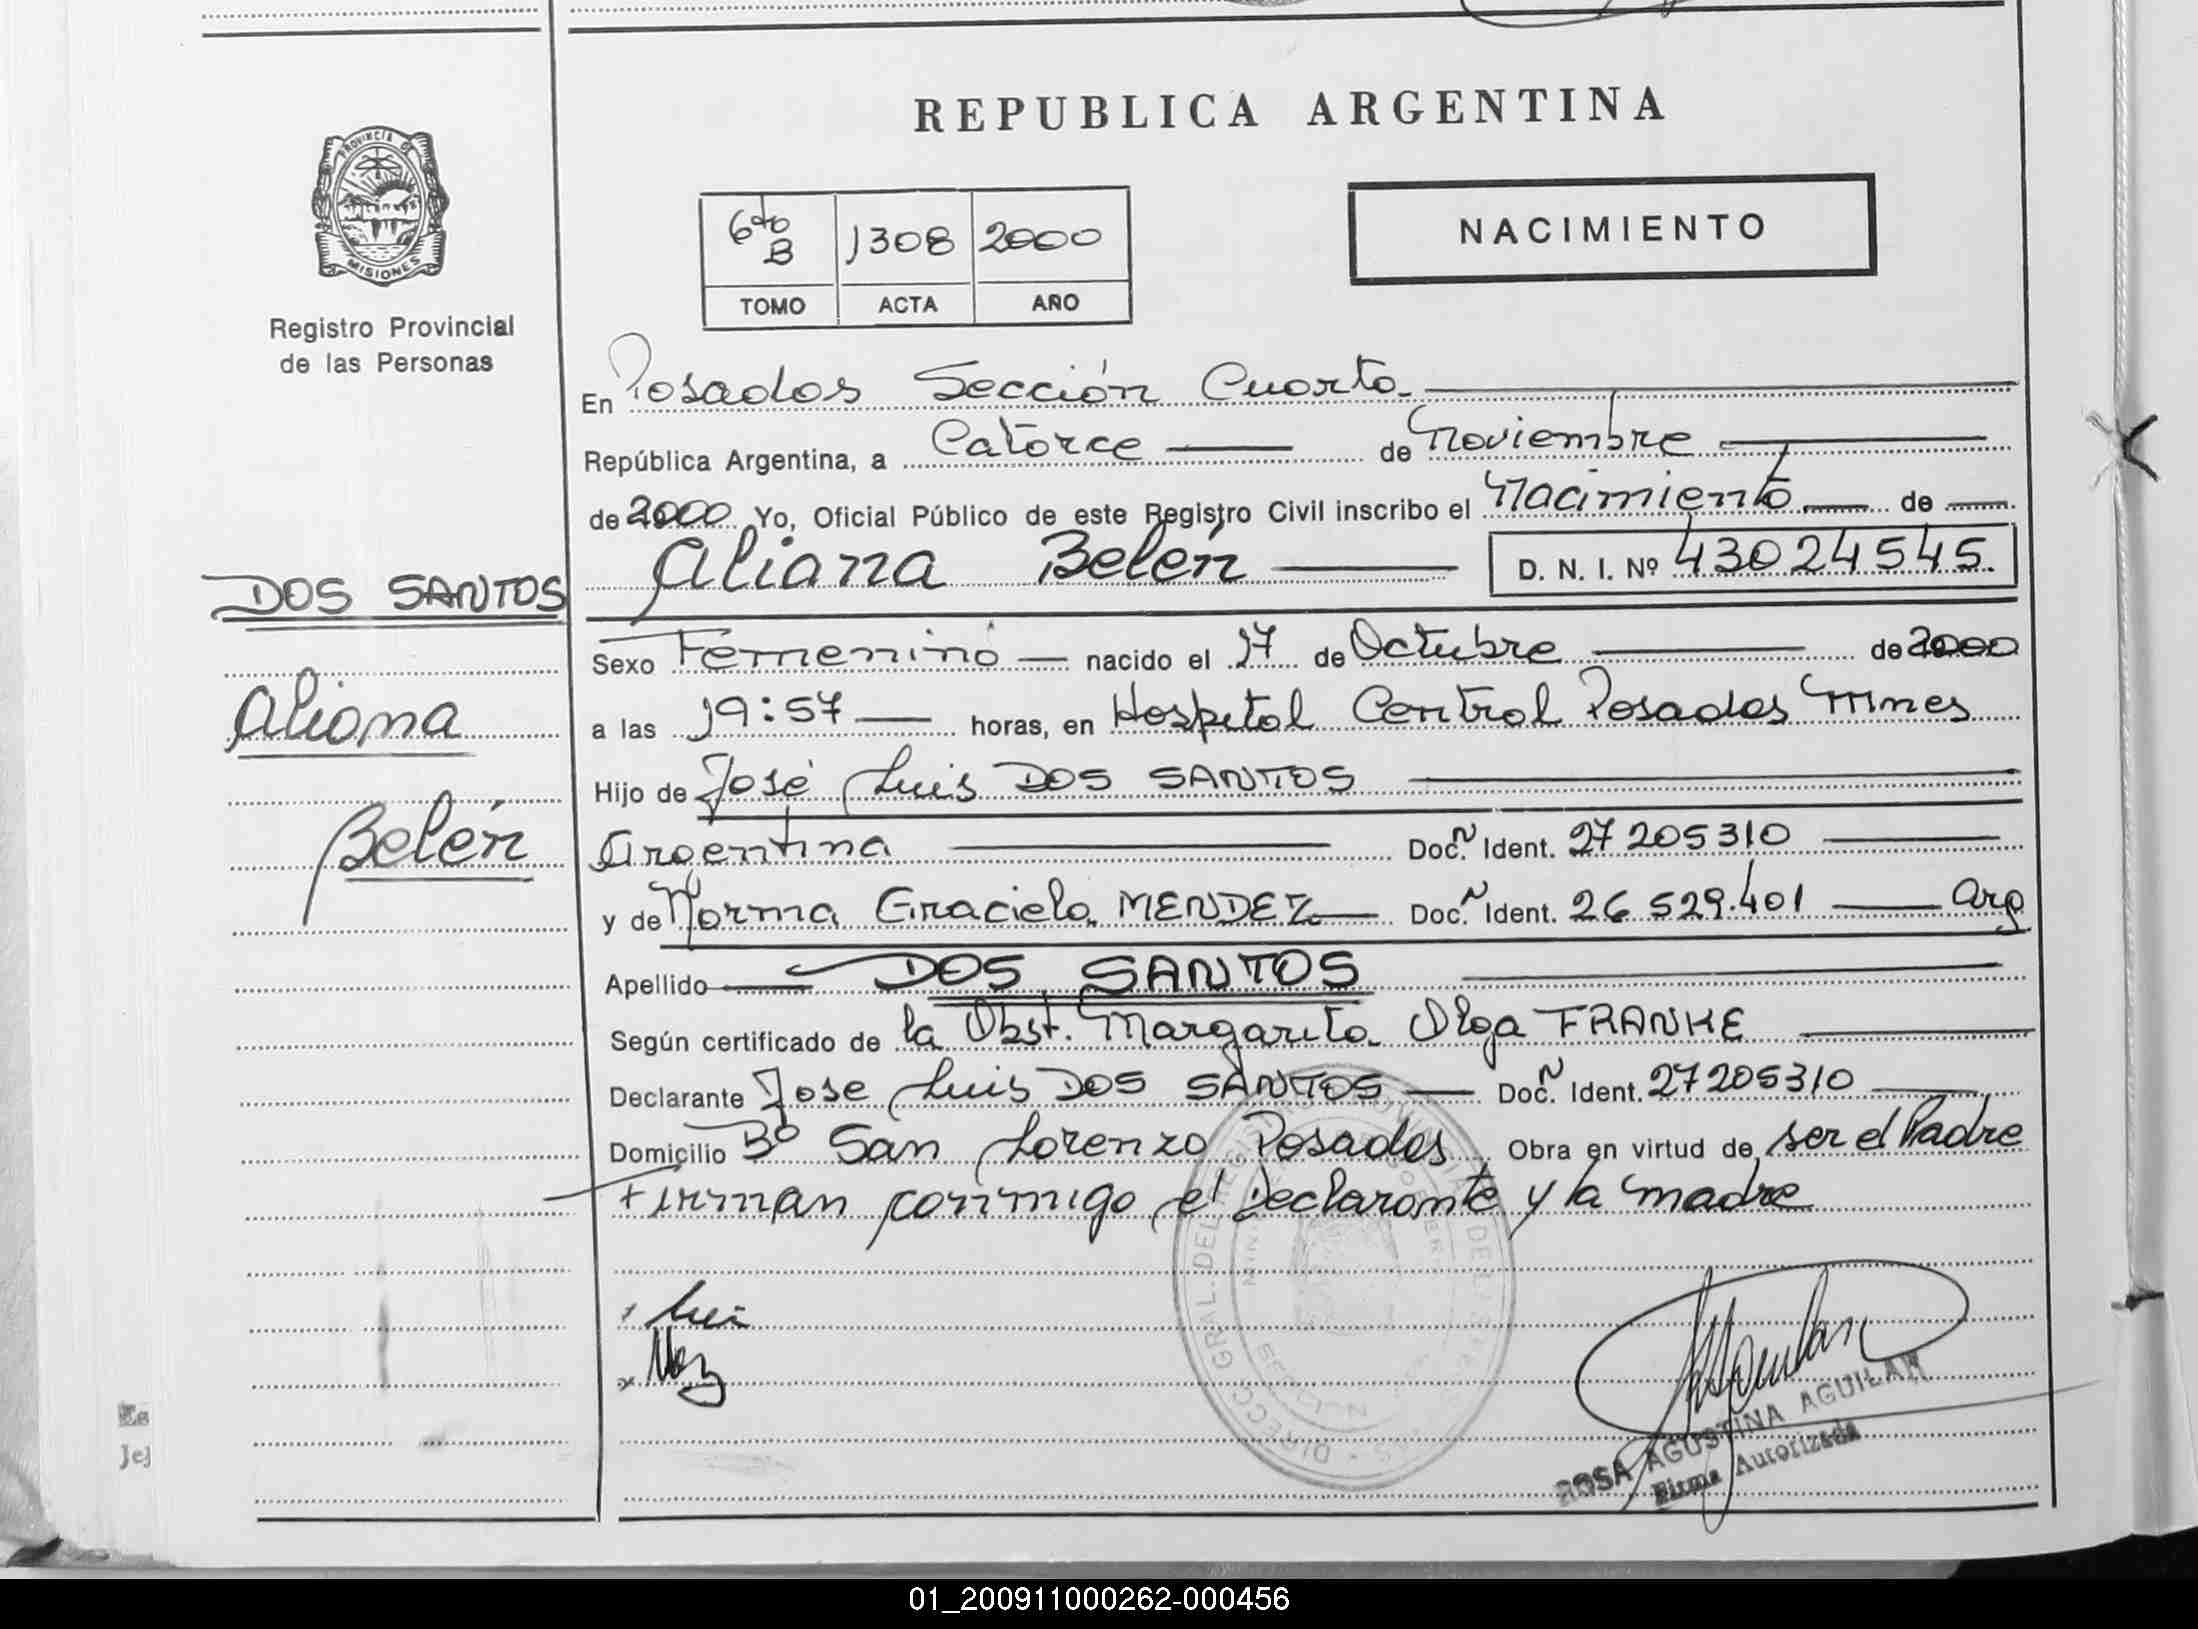 REPUBLICA ARGENTINA
PROVINCIA DE
MISIONES
Registro Provincial
de las Personas
6to B 1308 2000
TOMO ACTA AÑO
NACIMIENTO
En Posadas Sección Cuarta
República Argentina, a Catorce de Noviembre
de 2000 Yo, Oficial Público de este Registro Civil inscribo el Nacimiento de
Aliana Belén D. N. I. Nº 43024545.
DOS SANTOS
Aliana
Belén
Sexo Femenino nacido el 17 de Octubre de 2000
a las 19:57 horas, en Hospital Central Posadas Mnes
Hijo de José Luis DOS SANTOS
Argentina Doc. Ident. 27205310
y de Norma Graciela MENDEZ Doc. Ident. 26.529.401 Arg
Apellido DOS SANTOS
Según certificado de la Obst. Margarita Olga FRANKE
Declarante Jose Luis DOS SANTOS Doc. Ident. 27205310
Domicilio Bº San Lorenzo Posadas Obra en virtud de ser el Padre
Firman conmigo el Declarante y la madre
x Luis
x
ROSA AGUSTINA AGUILAR
Firma Autorizada
01_200911000262-000456